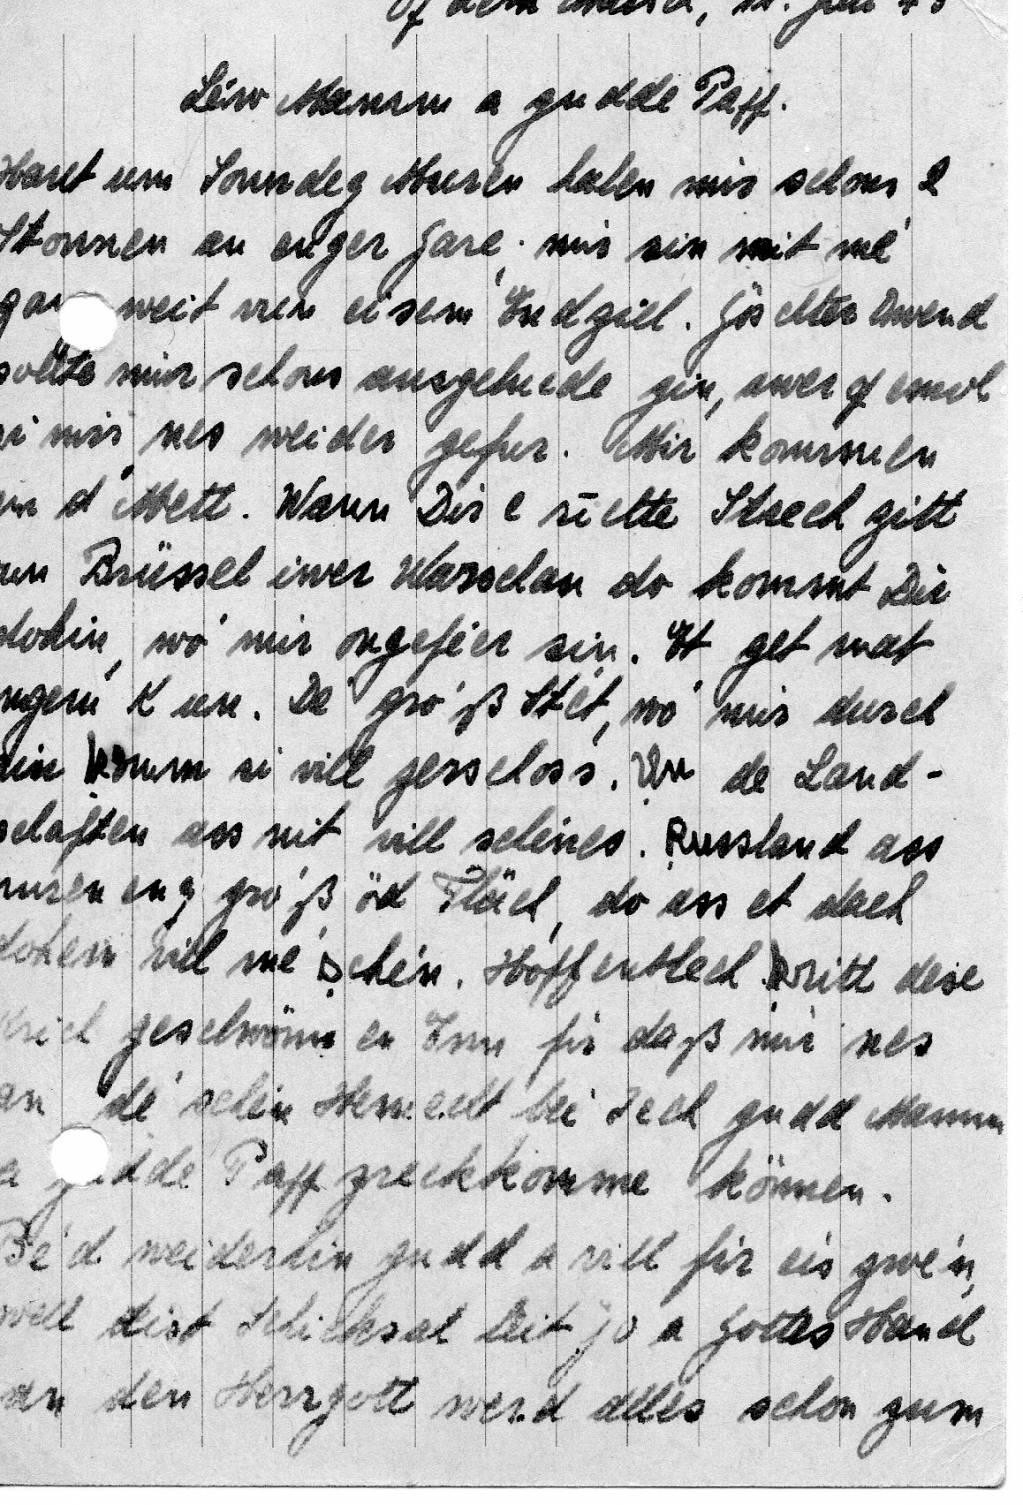 Of dem Marsch, 11. Juli 43
Léiw Mamm a gudde Paff.
Haut um Sonndeg Muren halen mir schons 2
Stonnen an enger Gare, mir sin nit mé
ganz weit vun eisem Endziel. Göschter Owend
sollte mir schons ausgelued gin, awer of emol
si mir nes weider gefur. Mir kommen
an d'Mett. Wann Dir e riichte Strech zitt
vun Brüssel iwer Warschau do kommt Dir
dohin, wo' mir ongeféier sin. Et get mat
engem K un. De' gro'ß Stét, wo' mir durch
sin komm si vill zerschoss. Un de Land-
schaften ass nit vill schénes. Russland ass
nuren eng gro'ß öd Fläch, do ass et dach
dohem vill me' schén. Hoffentlech hritt dese
Krich geschwönn en Enn fir daß mir nes
an de' schin Heemecht bei Iech gudd Mamm
a gudde Paff zreckkomme können.
Be'd weiderhin gudd a vill fir eis zwe'n,
well dist Schicksal leit jo a Gottes Hand
an den Herrgott werd alles schon zum